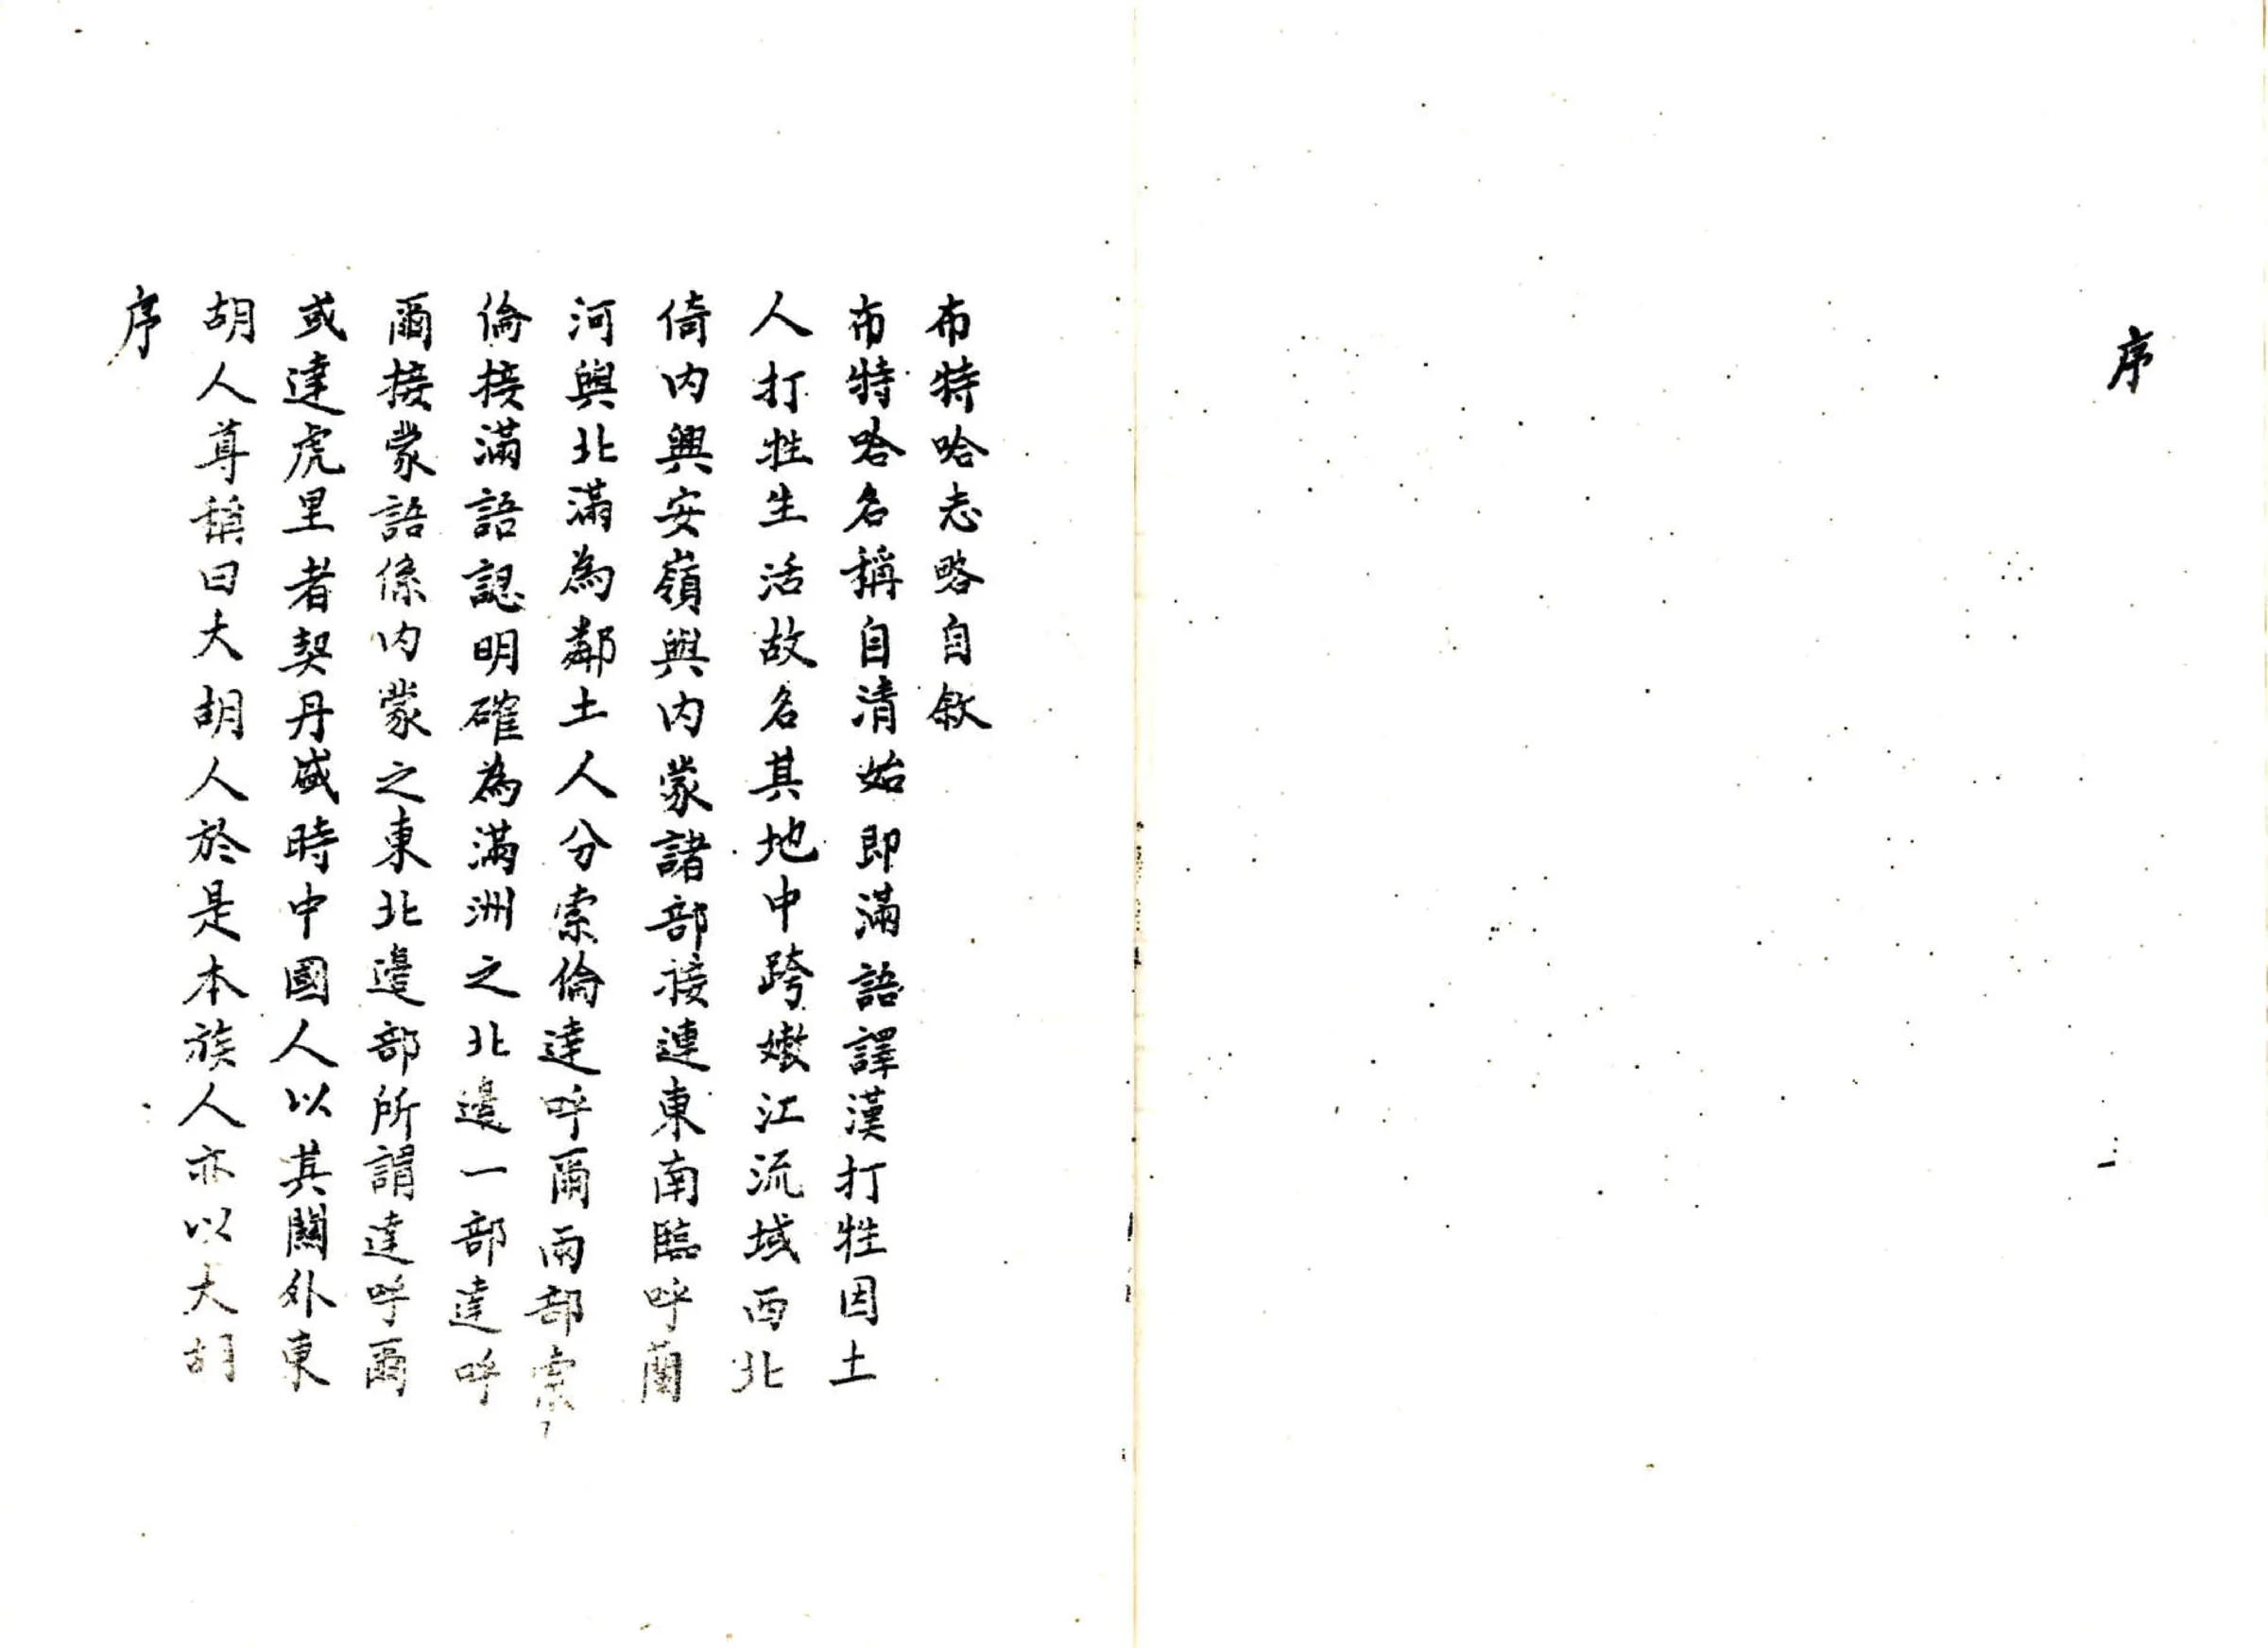 序
布特哈志略自敘
布特哈名稱自清始即滿語譯漢打牲因土
人打牲生活故名其地中跨嫩江流域西北
倚內興安嶺與內蒙諸部接連東南臨呼蘭
河與北滿為鄰土人分索倫達呼爾兩部索
倫接滿語認明確為滿洲之北邊一部達呼
爾接蒙語係內蒙之東北邊部所謂達呼爾
或達虎里者契丹盛時中國人以其關外東
胡人尊稱曰大胡人於是本族人亦以大胡
序